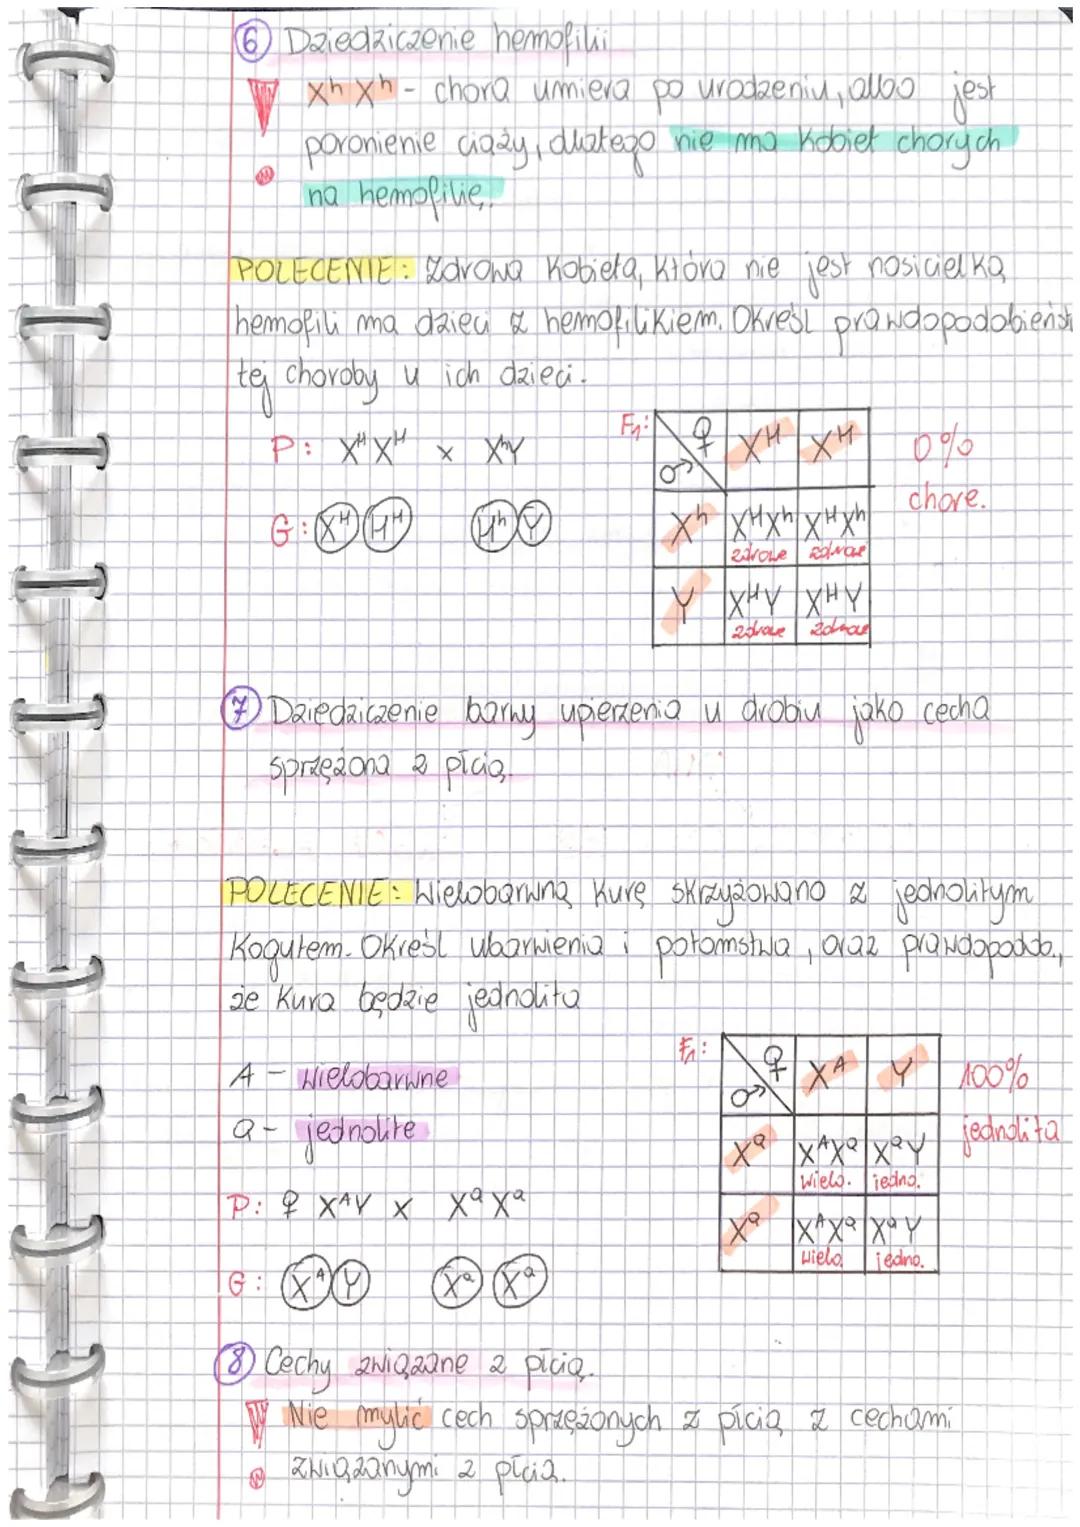 6 Dziedziczenie hemofilii
! XʰXʰ - chora umiera po urodzeniu, albo jest
poronienie ciąży, dlatego nie ma kobiet chorych
na hemofilię.
POLECENIE: Zdrowa kobieta, która nie jest nosicielką
hemofili ma dzieci z hemofilikiem. Określ prawdopodobieńst
tej choroby u ich dzieci.
P: XᴴXᴴ x XʰY
G: Xᴴ Hᴴ Hʰ Y
F₁:
♀ ♂ Xᴴ Xᴴ
Xʰ XᴴXʰ XᴴXʰ
zdrowe zdrowe
Y XᴴY XᴴY
zdrowe zdrowe
0%
chore.
7 Dziedziczenie barwy upierzenia u drobiu jako cecha
sprzężona z płcią.
POLECENIE: Wielobarwną kurę skrzyżowano z jednolitym
kogutem. Określ ubarwienia i potomstwa, oraz prawdopodob.,
że kura będzie jednolita
A - wielobarwne
a - jednolite
P: ♀ XᴬY x XᵃXᵃ
G: Xᴬ Y Xᵃ Xᵃ
F₁:
♀ ♂ Xᴬ Y
Xᵃ XᴬXᵃ XᵃY
wielo. jedno.
Xᵃ XᴬXᵃ XᵃY
wielo. jedno.
100%
jednolita
8 Cechy związane z płcią.
! Nie mylić cech sprzężonych z płcią z cechami
związanymi z płcią.